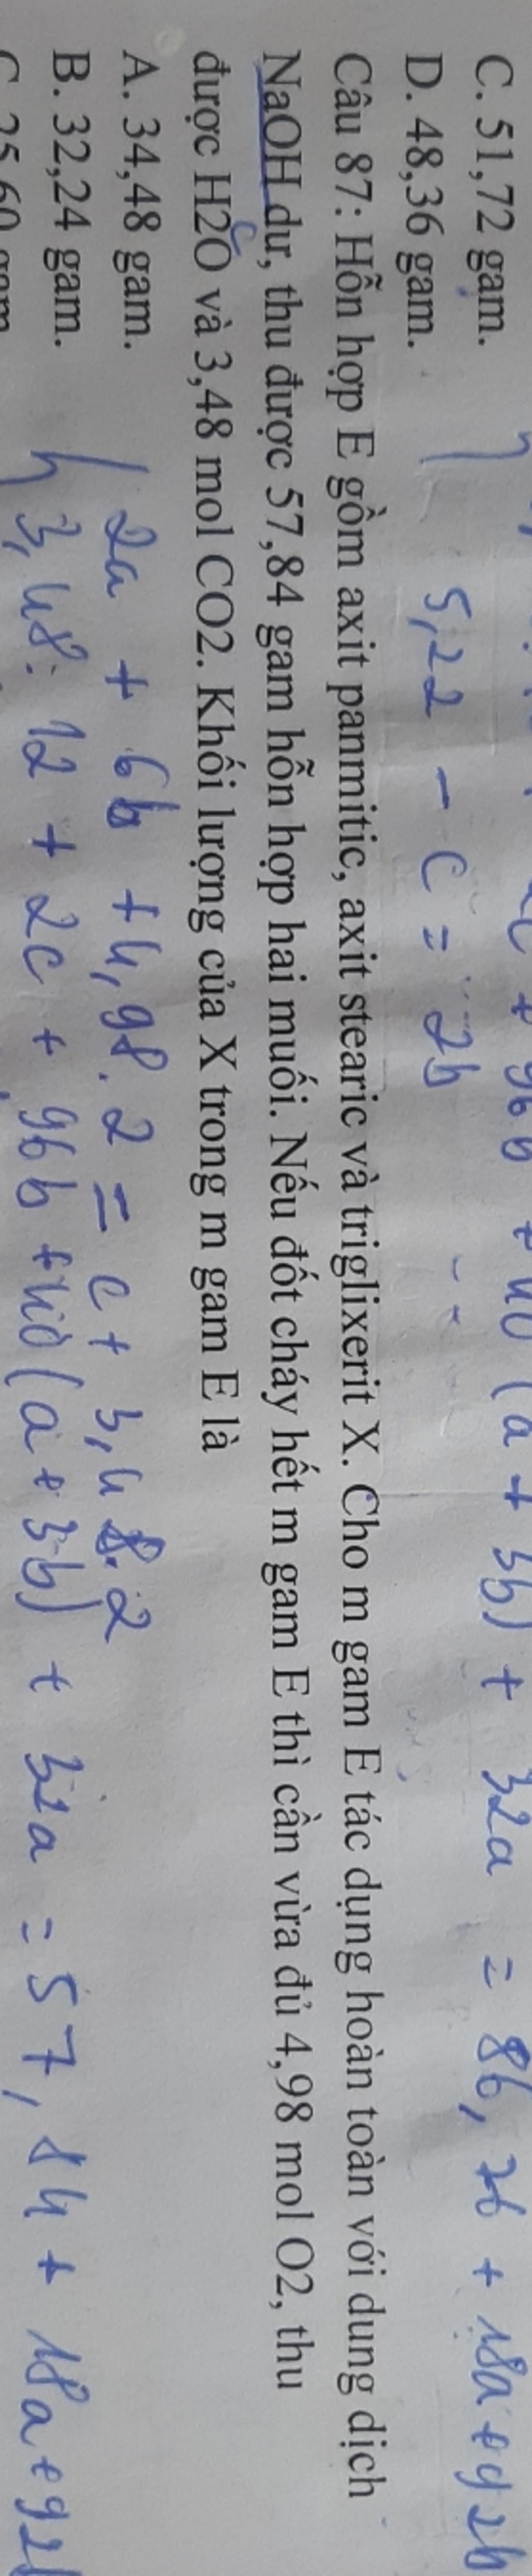 + 96b + 40(a + 3b) + 32a = 86,76 + 18a + 92b
C. 51,72 gam.
D. 48,36 gam.
5,22 - c = 2b
Câu 87: Hỗn hợp E gồm axit panmitic, axit stearic và triglixerit X. Cho m gam E tác dụng hoàn toàn với dung dịch
NaOH dư, thu được 57,84 gam hỗn hợp hai muối. Nếu đốt cháy hết m gam E thì cần vừa đủ 4,98 mol O2, thu
được H2O và 3,48 mol CO2. Khối lượng của X trong m gam E là
c
A. 34,48 gam.
2a + 6b + 4,98.2 = c + 3,48.2
B. 32,24 gam.
3,48.12 + 2c + 96b + 40(a + 3b) + 32a = 57,84 + 18a + 92b
C. 25,60 gam